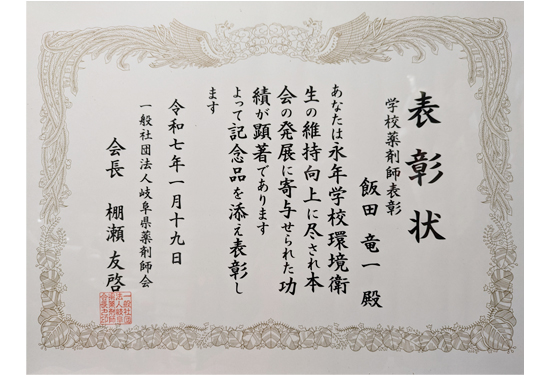 表彰状
学校薬剤師表彰
飯田 竜一 殿
あなたは永年学校環境衛
生の維持向上に尽され本
会の発展に寄与せられた功
績が顕著であります
よって記念品を添え表彰し
ます
令和七年一月十九日
一般社団法人岐阜県薬剤師会
会長 棚瀬 友啓